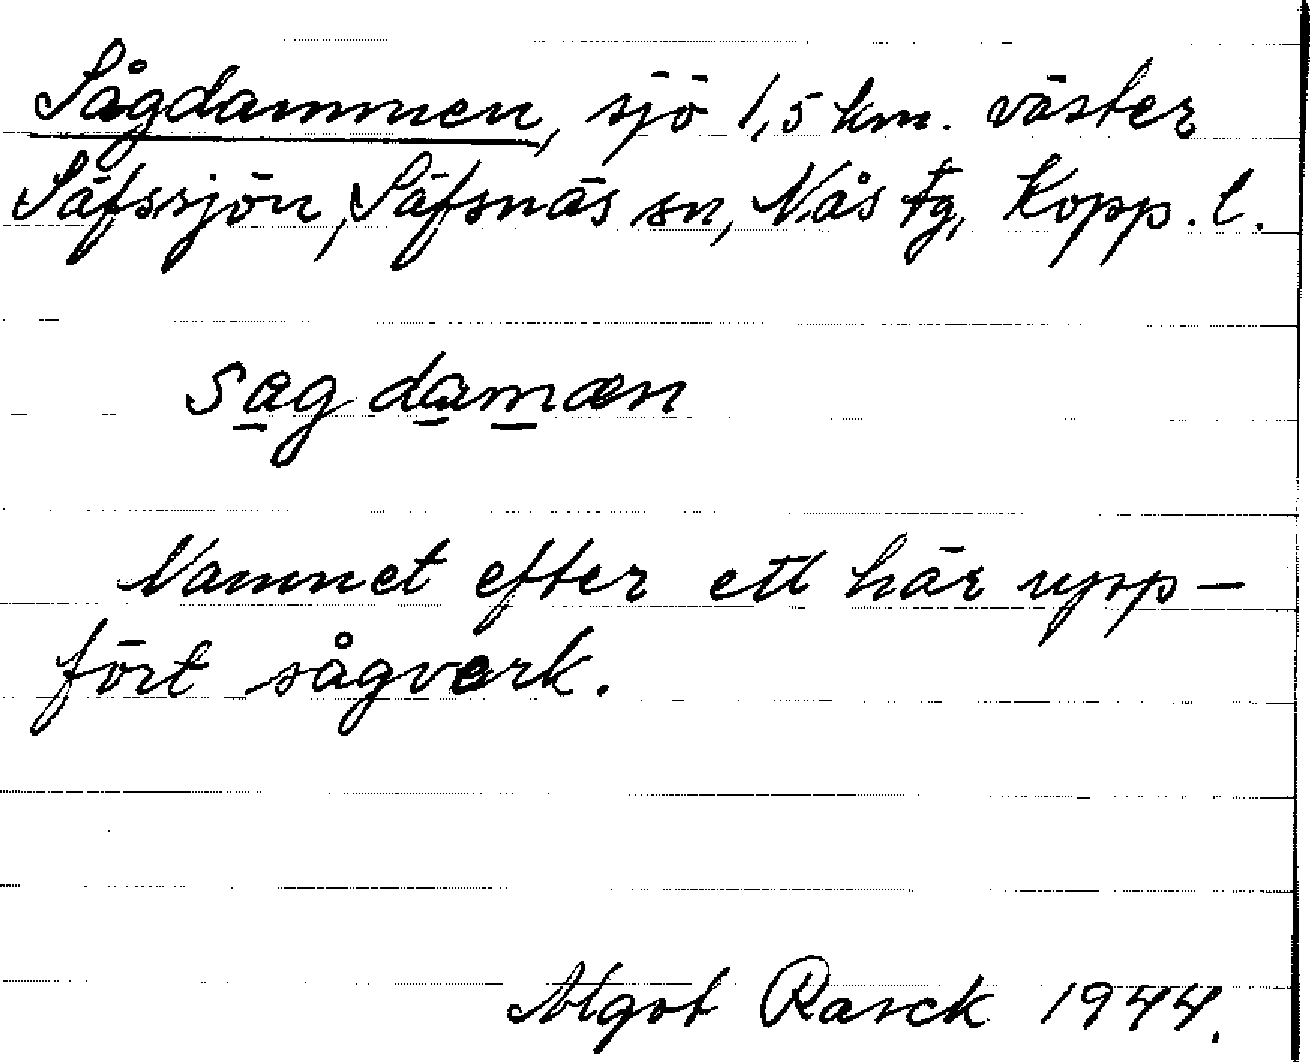 Sågdammen, sjö 1,5 km. väster
Säfssjön, Säfsnäs sn, Nås tg, Kopp. l.
sagdamæn
Namnet efter ett här upp-
fört sågverk.
Algot Rasck 1944.